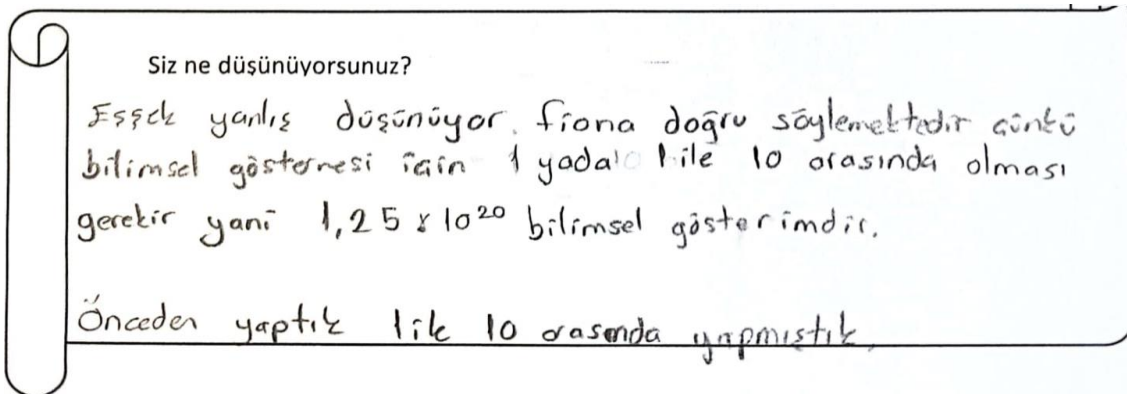 Siz ne düşünüyorsunuz?
Eşşek yanlış düşünüyor. fiona doğru söylemektedir çünkü
bilimsel göstermesi için 1 yada 1 ile 10 arasında olması
gerekir yani 1,25 x 10²⁰ bilimsel gösterimdir.
Önceden yaptık 1 ile 10 arasında yapmıştık.